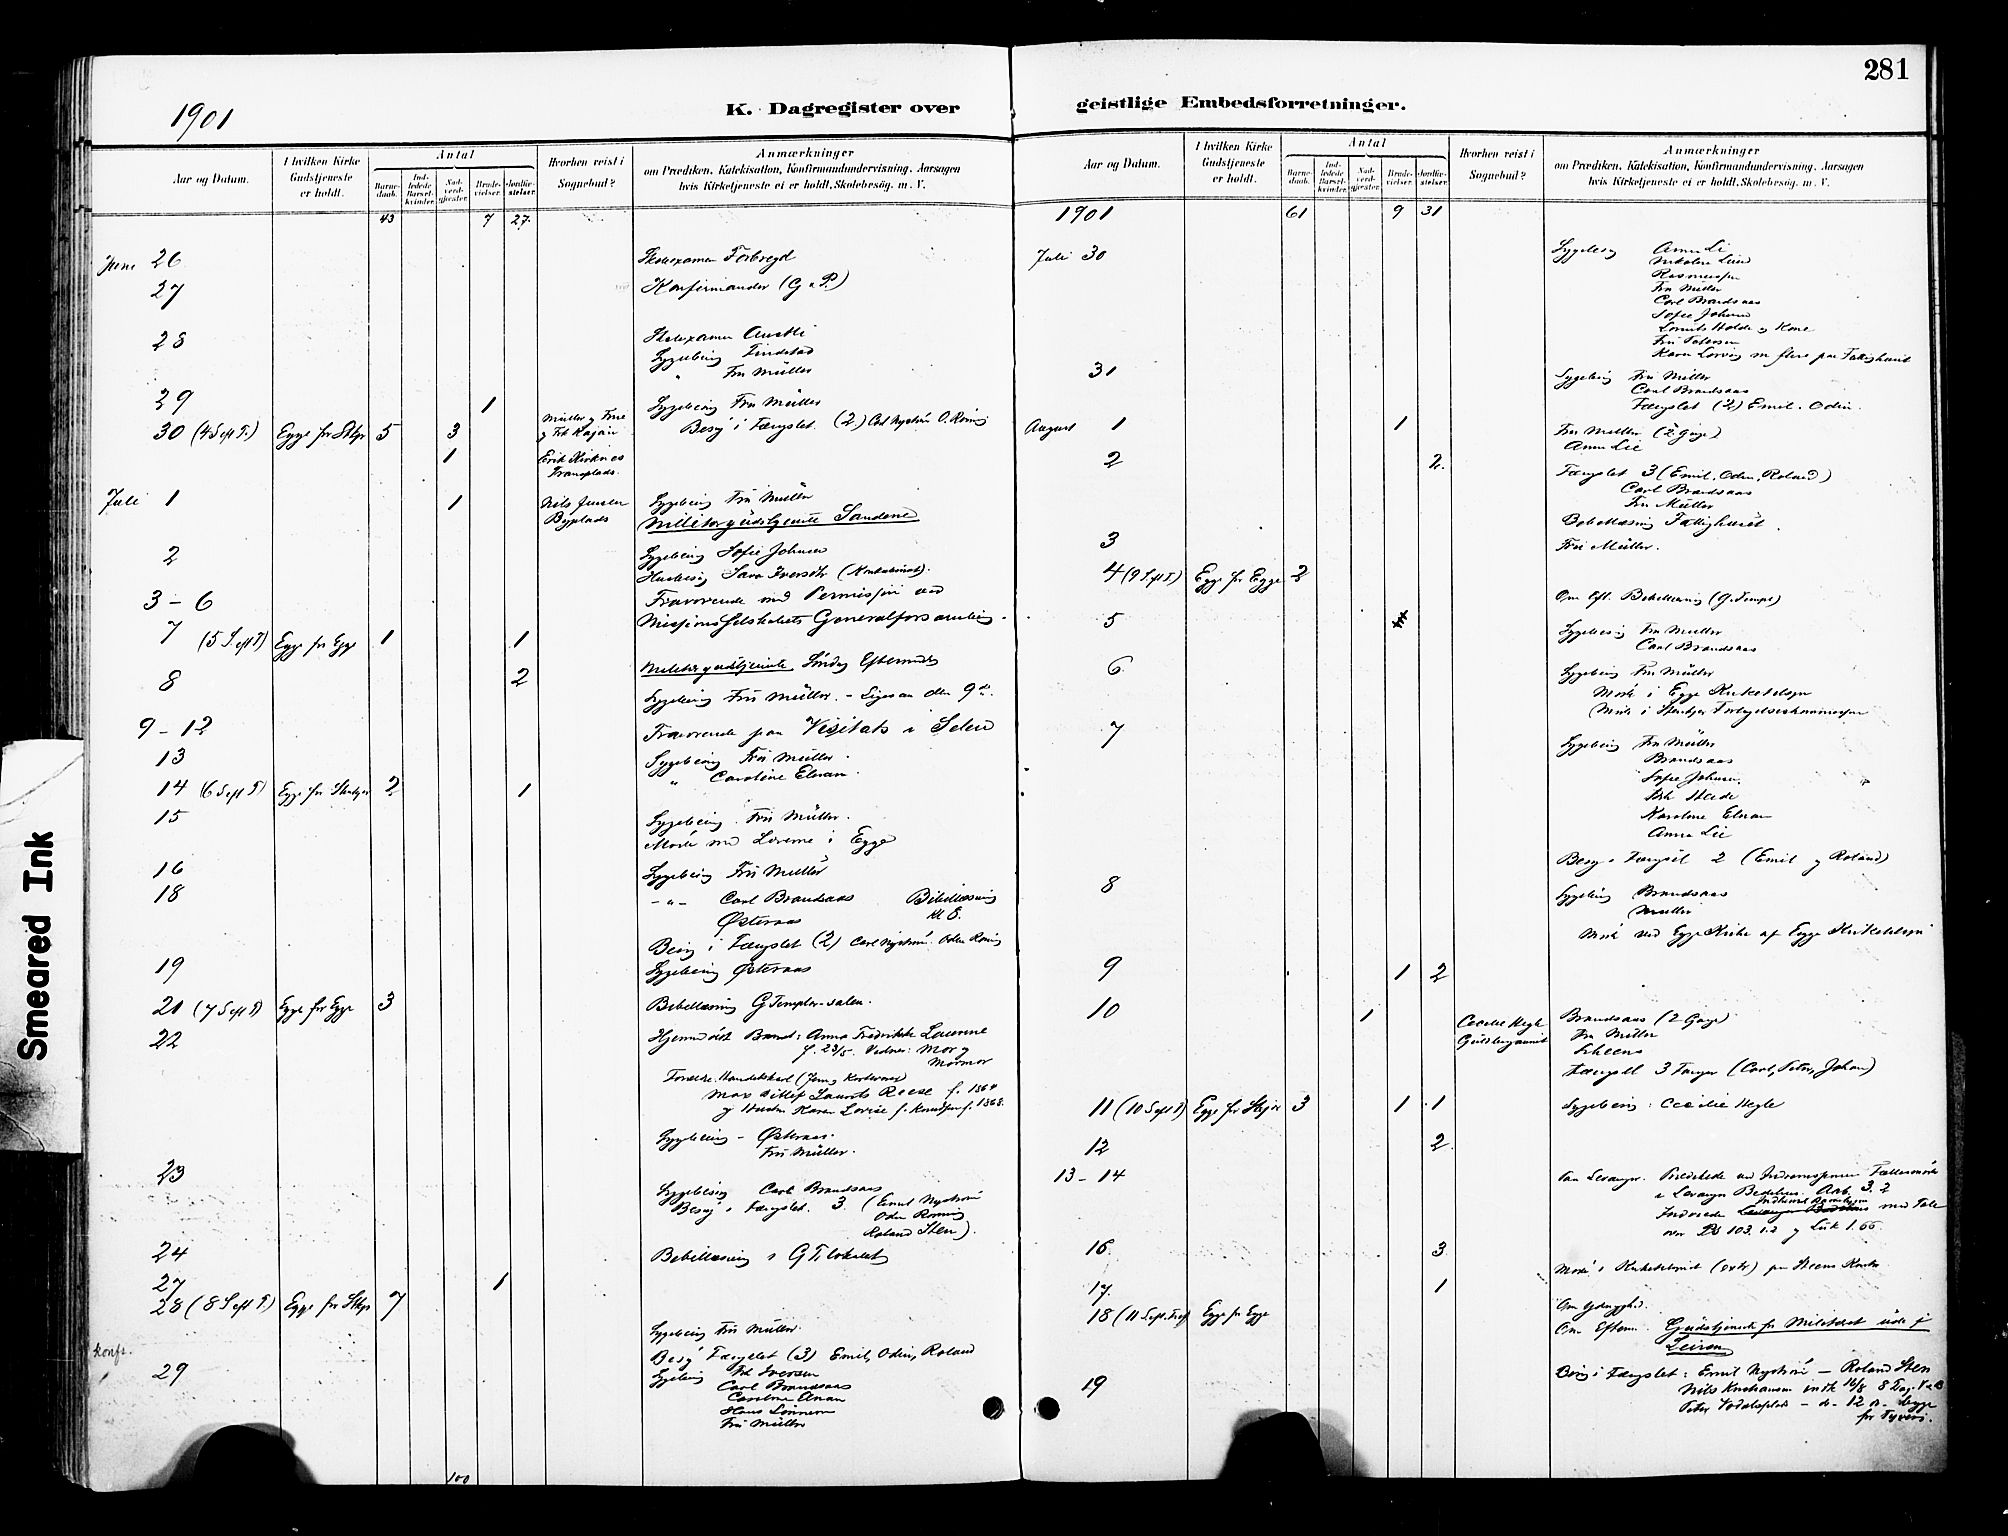 281
1901
K. Dagregister over
Aar og Datum.
I hvilken Kirke Gudstjeneste er holdt.
Antal
Barne-daab.
Ind-ledede Barsel-kvinder.
Nad-verd-gjæster.
Brude-vielser.
Jordfæ-stelser.
Hvorhen reist i Sognebud?
Anmærkninger
om Prædiken, Katekisation, Konfirmandundervisning, Aarsagen
hvis Kirketjeneste ei er holdt, Skolebesøg, m. V.
43 7 27.
Juni 26 Skolexamen Forbregd
27 Konfirmander (G. P.)
28 Skolexamen
Sygebesøg Findstad
" Fru Müller
29 1 Sygebesøg Fru Müller
30 (4 S. eft T.) Egge for Stkjr 5 3 Müller og Frue Besøg i Fængslet (2) Carl Nystrøm O. Roning
1 Erik Kirknes
Tranaplads.
Juli 1 1 Nils Jensen Sygebesøg Fru Müller
Byplads Militærgudstjeneste Sandene
2 Sygebesøg Sofie Johnsen
Husbesøg Sara
3-6 Fraværende med Permission ved
Missionsselskabets Generalforsamling.
7 (5 S. eft T) Egge for Egge 1 1
Militærgudstjeneste Søndag Eftermidd.
8 2 Sygebesøg Fru Müller. - Ligesaa den 9de.
9-12 Fraværende paa Visitats i
13 Sygebesøg Fru Müller.
" Caroline Elnan.
14 (6 S. eft T) Egge for Stenkjer 2 1
15 Sygebesøg Fru Müller.
Møde med Lærerne i Egge
16 Sygebesøg Fru Müller
18 -"- Carl Brandsaas Bibellæsning
Østeraas kl 8.
Besøg i Fængslet (2) Carl Nystrøm. Oden Roning
19 Sygebesøg Østeraas
21 (7 S. eft T) Egge for Egge 3 Bibellæsning G Templar-salen.
22 Hjemmedøbt Barnet: Anna Fredrikke Laurine
f. 23/5. Vidner: Mor og
Mormor
Forældre: Handelskarl
Max Ditlef Laurits Reese f. 1864
og Hustru Karen Lovise f. Knudsen f. 1868.
Sygebesøg - Østeraas.
Fru Müller.
23 Sygebesøg Carl Brandsaas
Besøg i Fængslet. 3. (Emil Nystrøm
Oden Roning
Roland Sten).
24 Bibellæsning i G T. lokalet
27 1
28 (8 S. eft T.) Egge for Stkjr 7
Sygebesøg Fru Müller.
konfr. Besøg Fængslet (3) Emil, Odin, Roland
29 Sygebesøg Frk Iversen
Carl Brandsaas
Caroline Elnan
Hans
Fru Müller
100
geistlige Embedsforretninger.
Aar og Datum.
I hvilken Kirke Gudstjeneste er holdt.
Antal
Barne-daab.
Ind-ledede Barsel-kvinder.
Nad-verd-gjæster.
Brude-vielser.
Jordfæ-stelser.
Hvorhen reist i Sognebud?
Anmærkninger
om Prædiken, Katekisation, Konfirmandundervisning, Aarsagen
hvis Kirketjeneste ei er holdt, Skolebesøg, m. V.
1901 61 9 31
Juli 30 Sygebesøg Anna Li
Nikoline Lund
Rasmussen
Fru Müller
Carl Brandsaas
Sofie Johnsen
Holde og Kone
Fru Petersen
Karen m flere paa Fattighuset
31 Sygebesøg Fru Müller
Carl Brandsaas
Fængslet (2) Emil. Odin.
August 1 1 Fru Müller (2 Gange)
Anna Lie
2 2. Fængslet 3 (Emil, Oden, Roland)
Carl Brandsaas
Fru Müller
Bibellæsning Fattighuset.
3 Fru Müller.
4 (9 S. eft T) Egge for Egge 2
Om Eft. Bibellæsning (G. Templ)
5 Sygebesøg Fru Müller
Carl Brandsaas
6. Sygebesøg Fru Müller
Møde i Egge Kirketilsyn
Møde i Stenkjer Forligelseskommission
7 Sygebesøg Fru Müller
Brandsaas
Sofie Johnsen.
Karoline Elnan
Anna Lie
Besøg i Fængslet 2 (Emil og Roland)
8 Sygebesøg Brandsaas
Müller
Møde ved Egge Kirke af Egge Kirketilsyn
9 1 2
10 1 Cecilie Hegle Brandsaas (2 Gange)
Fru Müller
Fængslet 3 Fanger (Carl, Peter, Johan)
11 (10 S. eft T) Egge for Stkjer 3 1 1 Sygebesøg: Cecilie Hegle
12 2
13-14 Paa Levanger. Prædikede ved Indremissionens Fællesmøde
i Levanger Bedehus. Aab. 3. 2
Indviede med Tale
over Ps 103. 1.2 og Luk 1.66.
16 3.
Møde i Kirketilsynet (extr) paa Steens Kontor
17. 1
18 (11 S. eft. Tref. Egge for Egge Om Ydmyghed.
Om Efterm. Gudstjeneste for Militæret ude paa
Leiren
19 Besøg i Fængslet: Emil Nystrøm - Roland Sten
Nils Knutsen indk 16/8 8 Dag. V & B
Peter - do - 12 do -
for Tyveri.
Smeared Ink